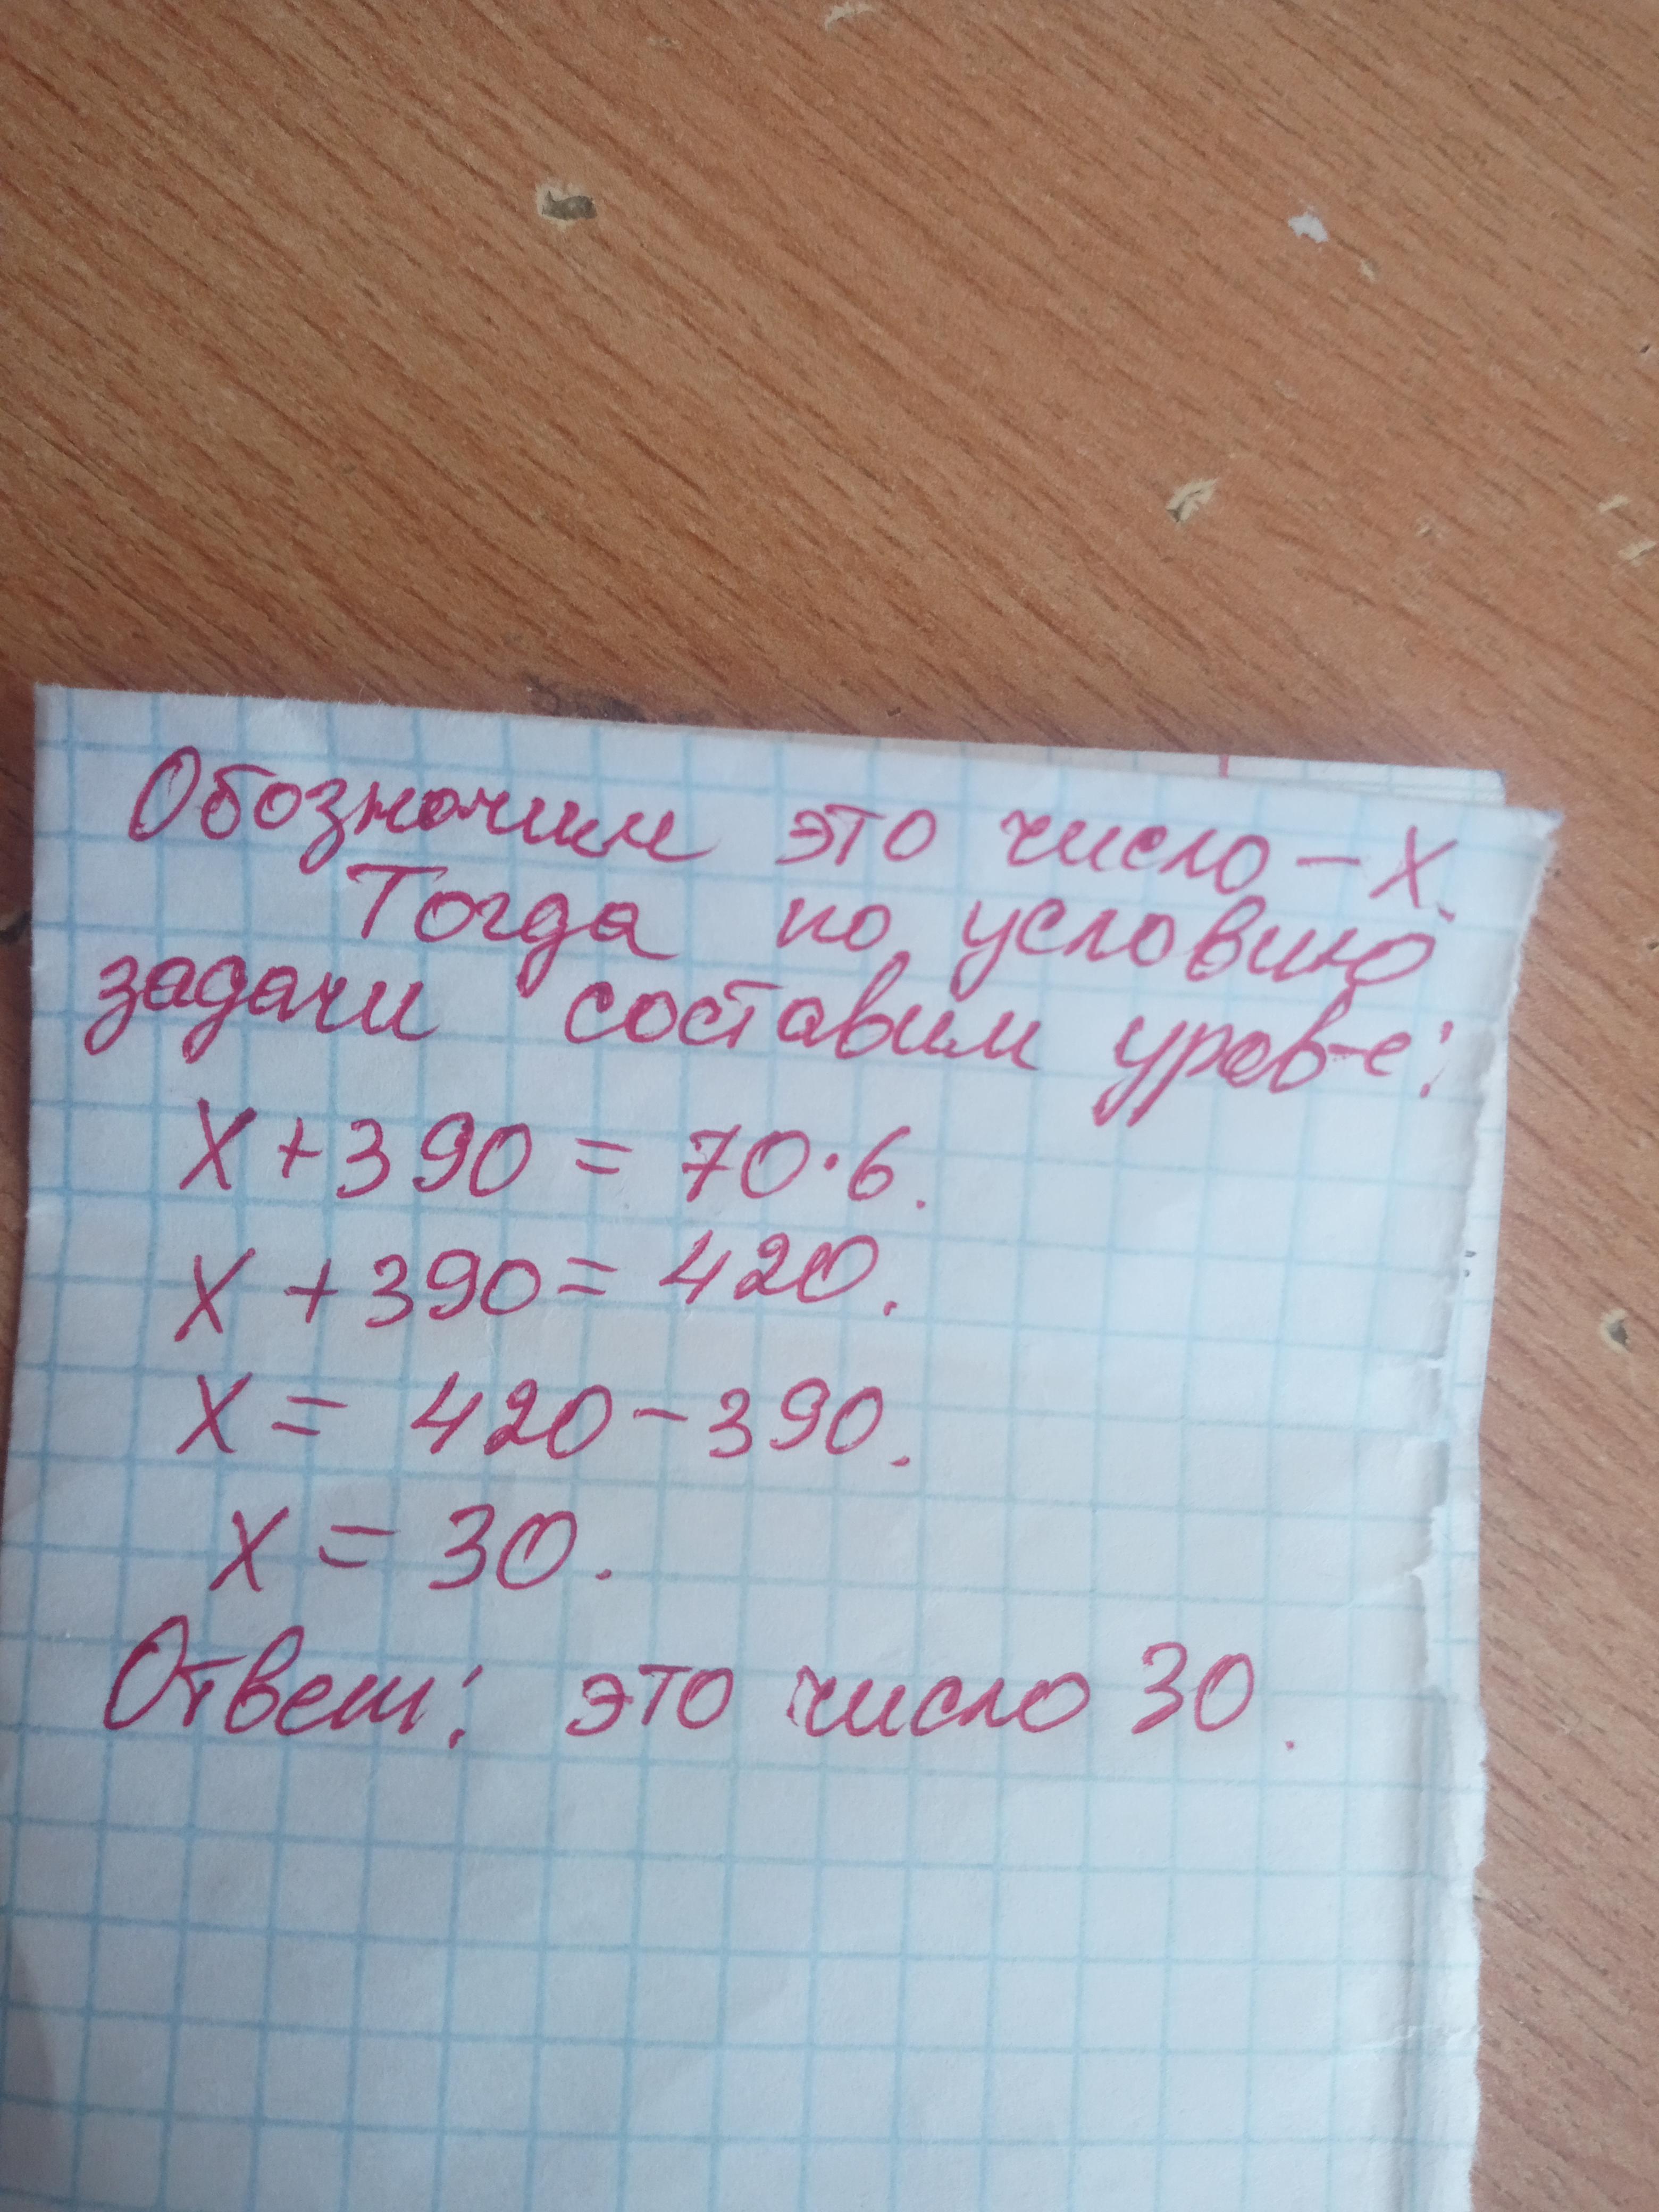 Обозначим это число – х.
Тогда по условию
задачи составим урав-е:
х + 390 = 70 · 6.
х + 390 = 420.
х = 420 – 390.
х = 30.
Ответ: это число 30.